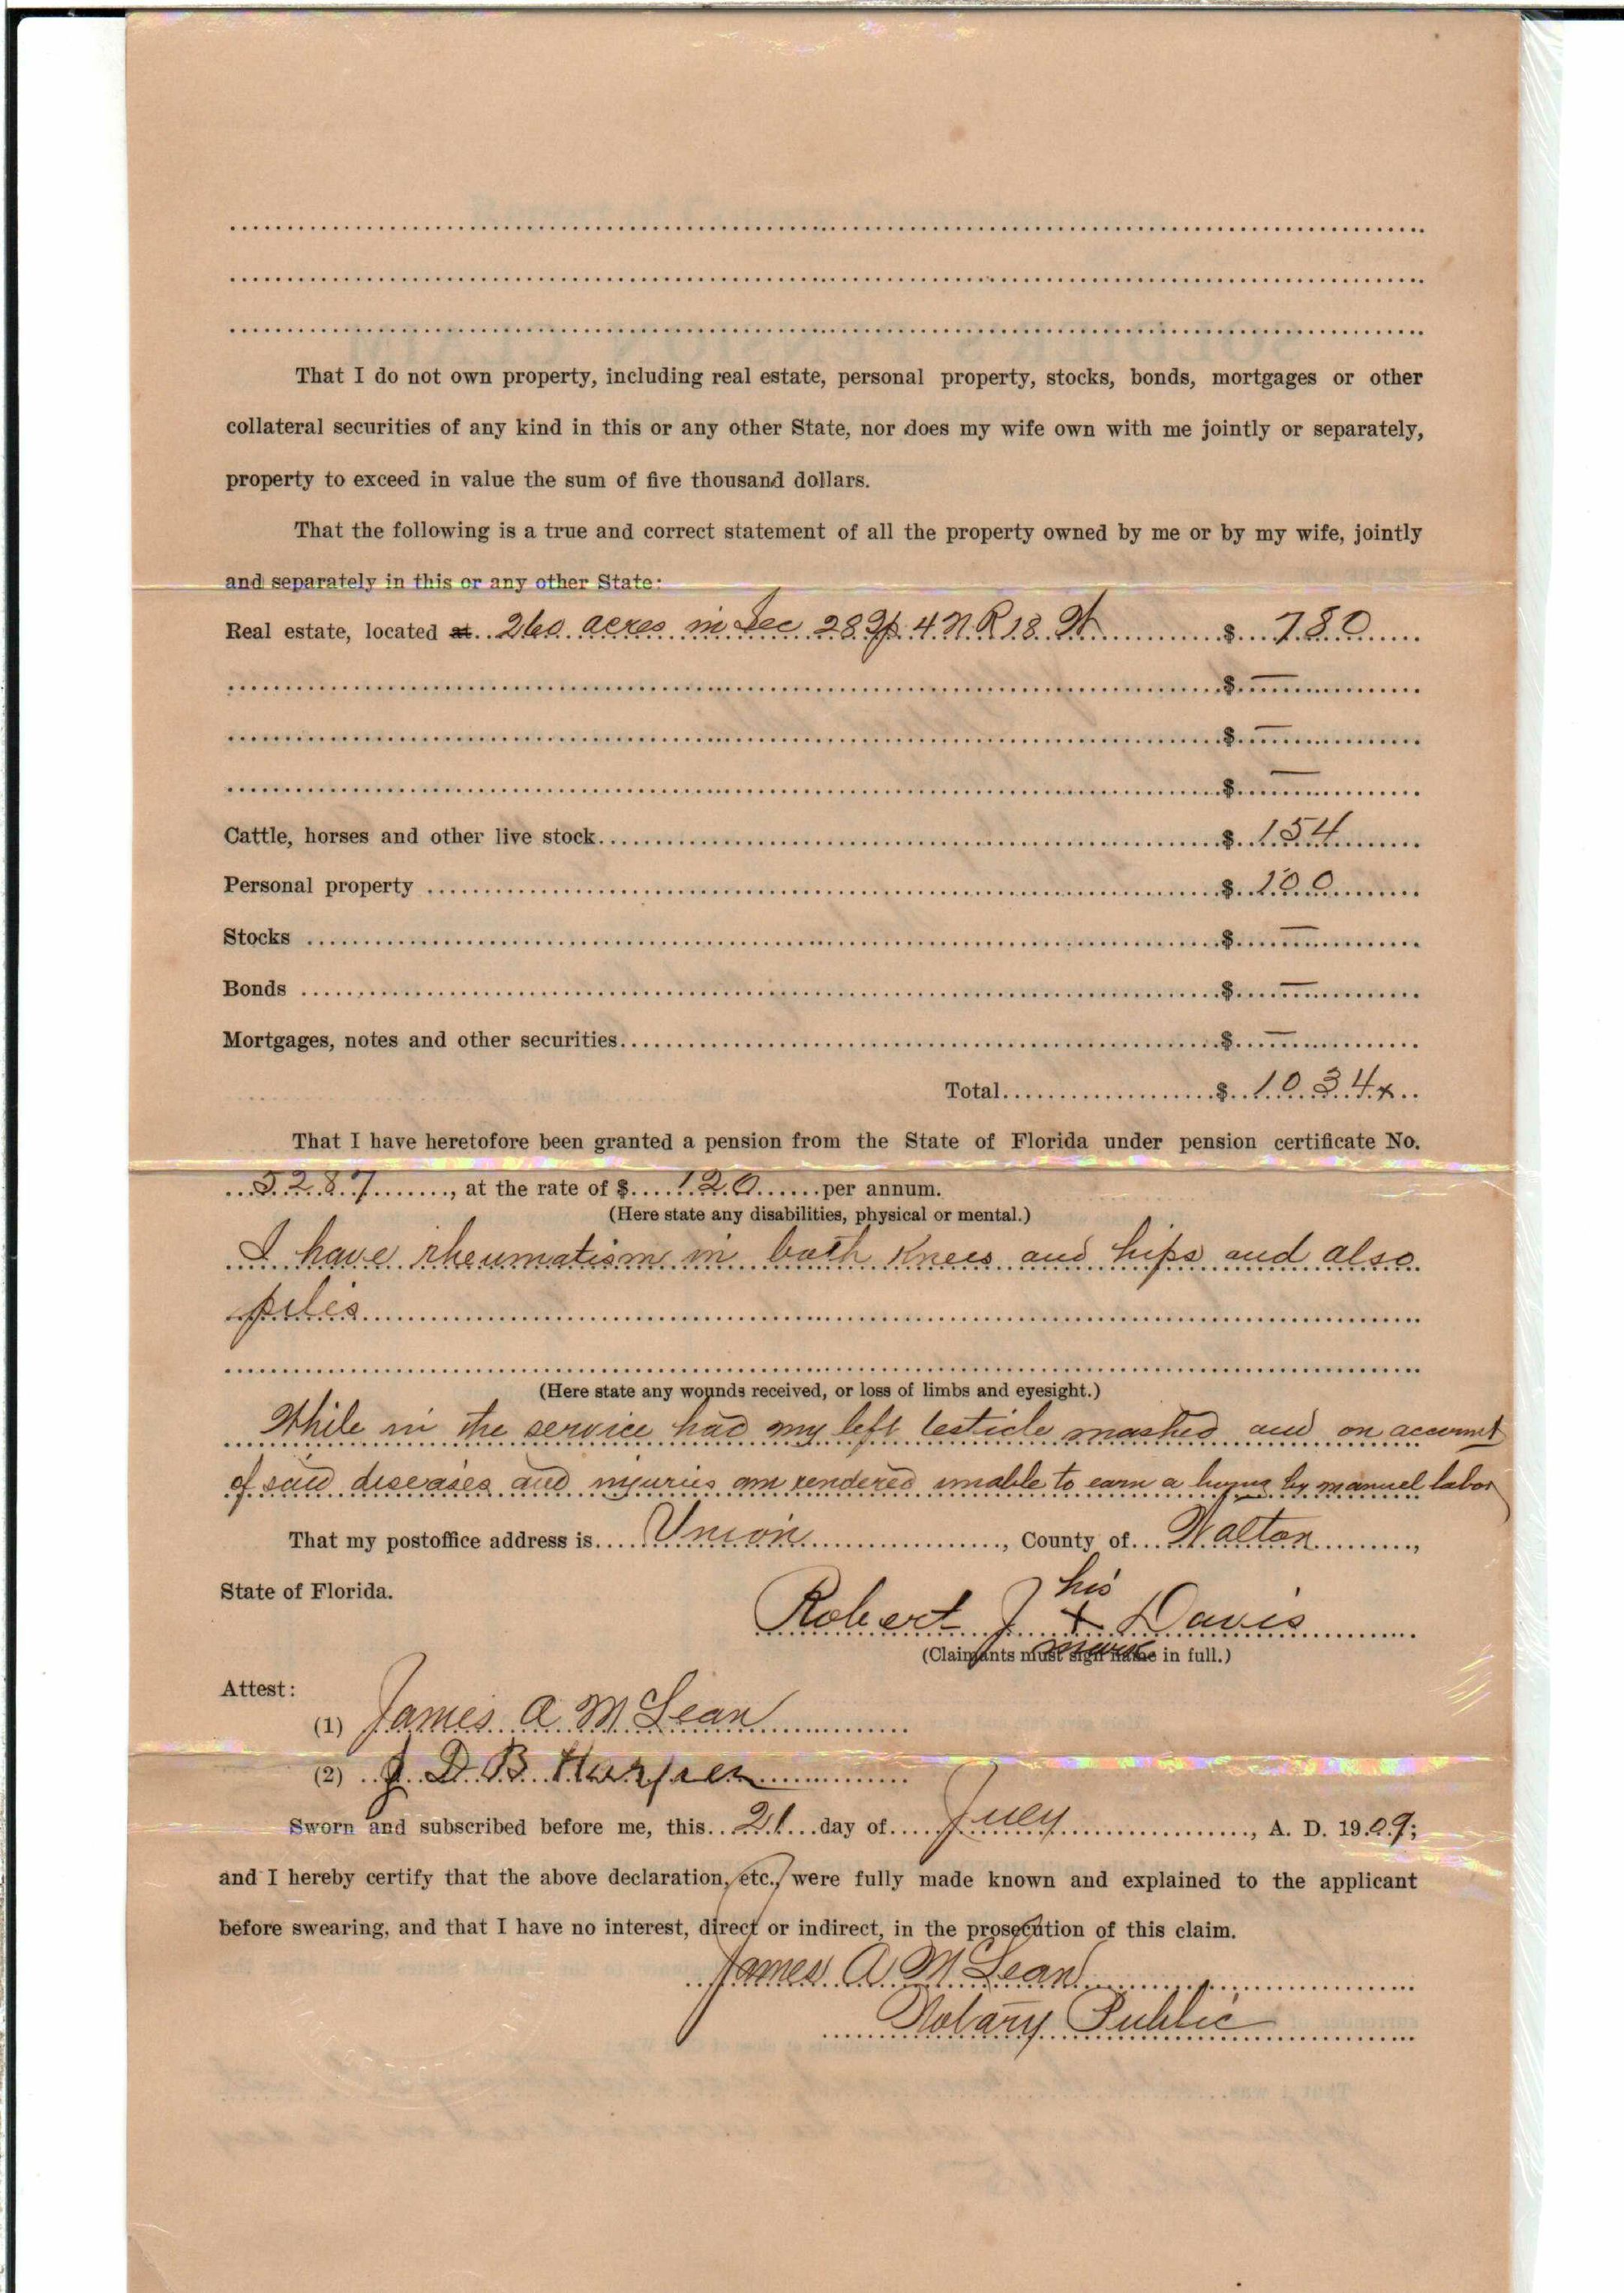 That I do not own property, including real estate, personal property, stocks, bonds, mortgages or other
collateral securities of any kind in this or any other State, nor does my wife own with me jointly or separately,
property to exceed in value the sum of five thousand dollars.
That the following is a true and correct statement of all the property owned by me or by my wife, jointly
and separately in this or any other State:
Real estate, located at 260 acres in Sec 28 Tp 4 N. R 18. W $ 780
$ —
$ —
$ —
Cattle, horses and other live stock $ 154
Personal property $ 100
Stocks $ —
Bonds $ —
Mortgages, notes and other securities $ —
Total $ 1034
That I have heretofore been granted a pension from the State of Florida under pension certificate No.
5287, at the rate of $ 120 per annum.
(Here state any disabilities, physical or mental.)
I have rheumatism in both Knees and hips and also
piles
(Here state any wounds received, or loss of limbs and eyesight.)
While in the service had my left testicle mashed and on account
of said diseases and injuries am rendered unable to earn a living by manuel labor
That my postoffice address is Union, County of Walton,
State of Florida.
his
Robert J x Davis
mark
(Claimants must sign name in full.)
Attest:
(1) James A McLean
(2) J. D. B. Harper
Sworn and subscribed before me, this 21 day of July, A. D. 1909;
and I hereby certify that the above declaration, etc., were fully made known and explained to the applicant
before swearing, and that I have no interest, direct or indirect, in the prosecution of this claim.
James A McLean
Notary Public